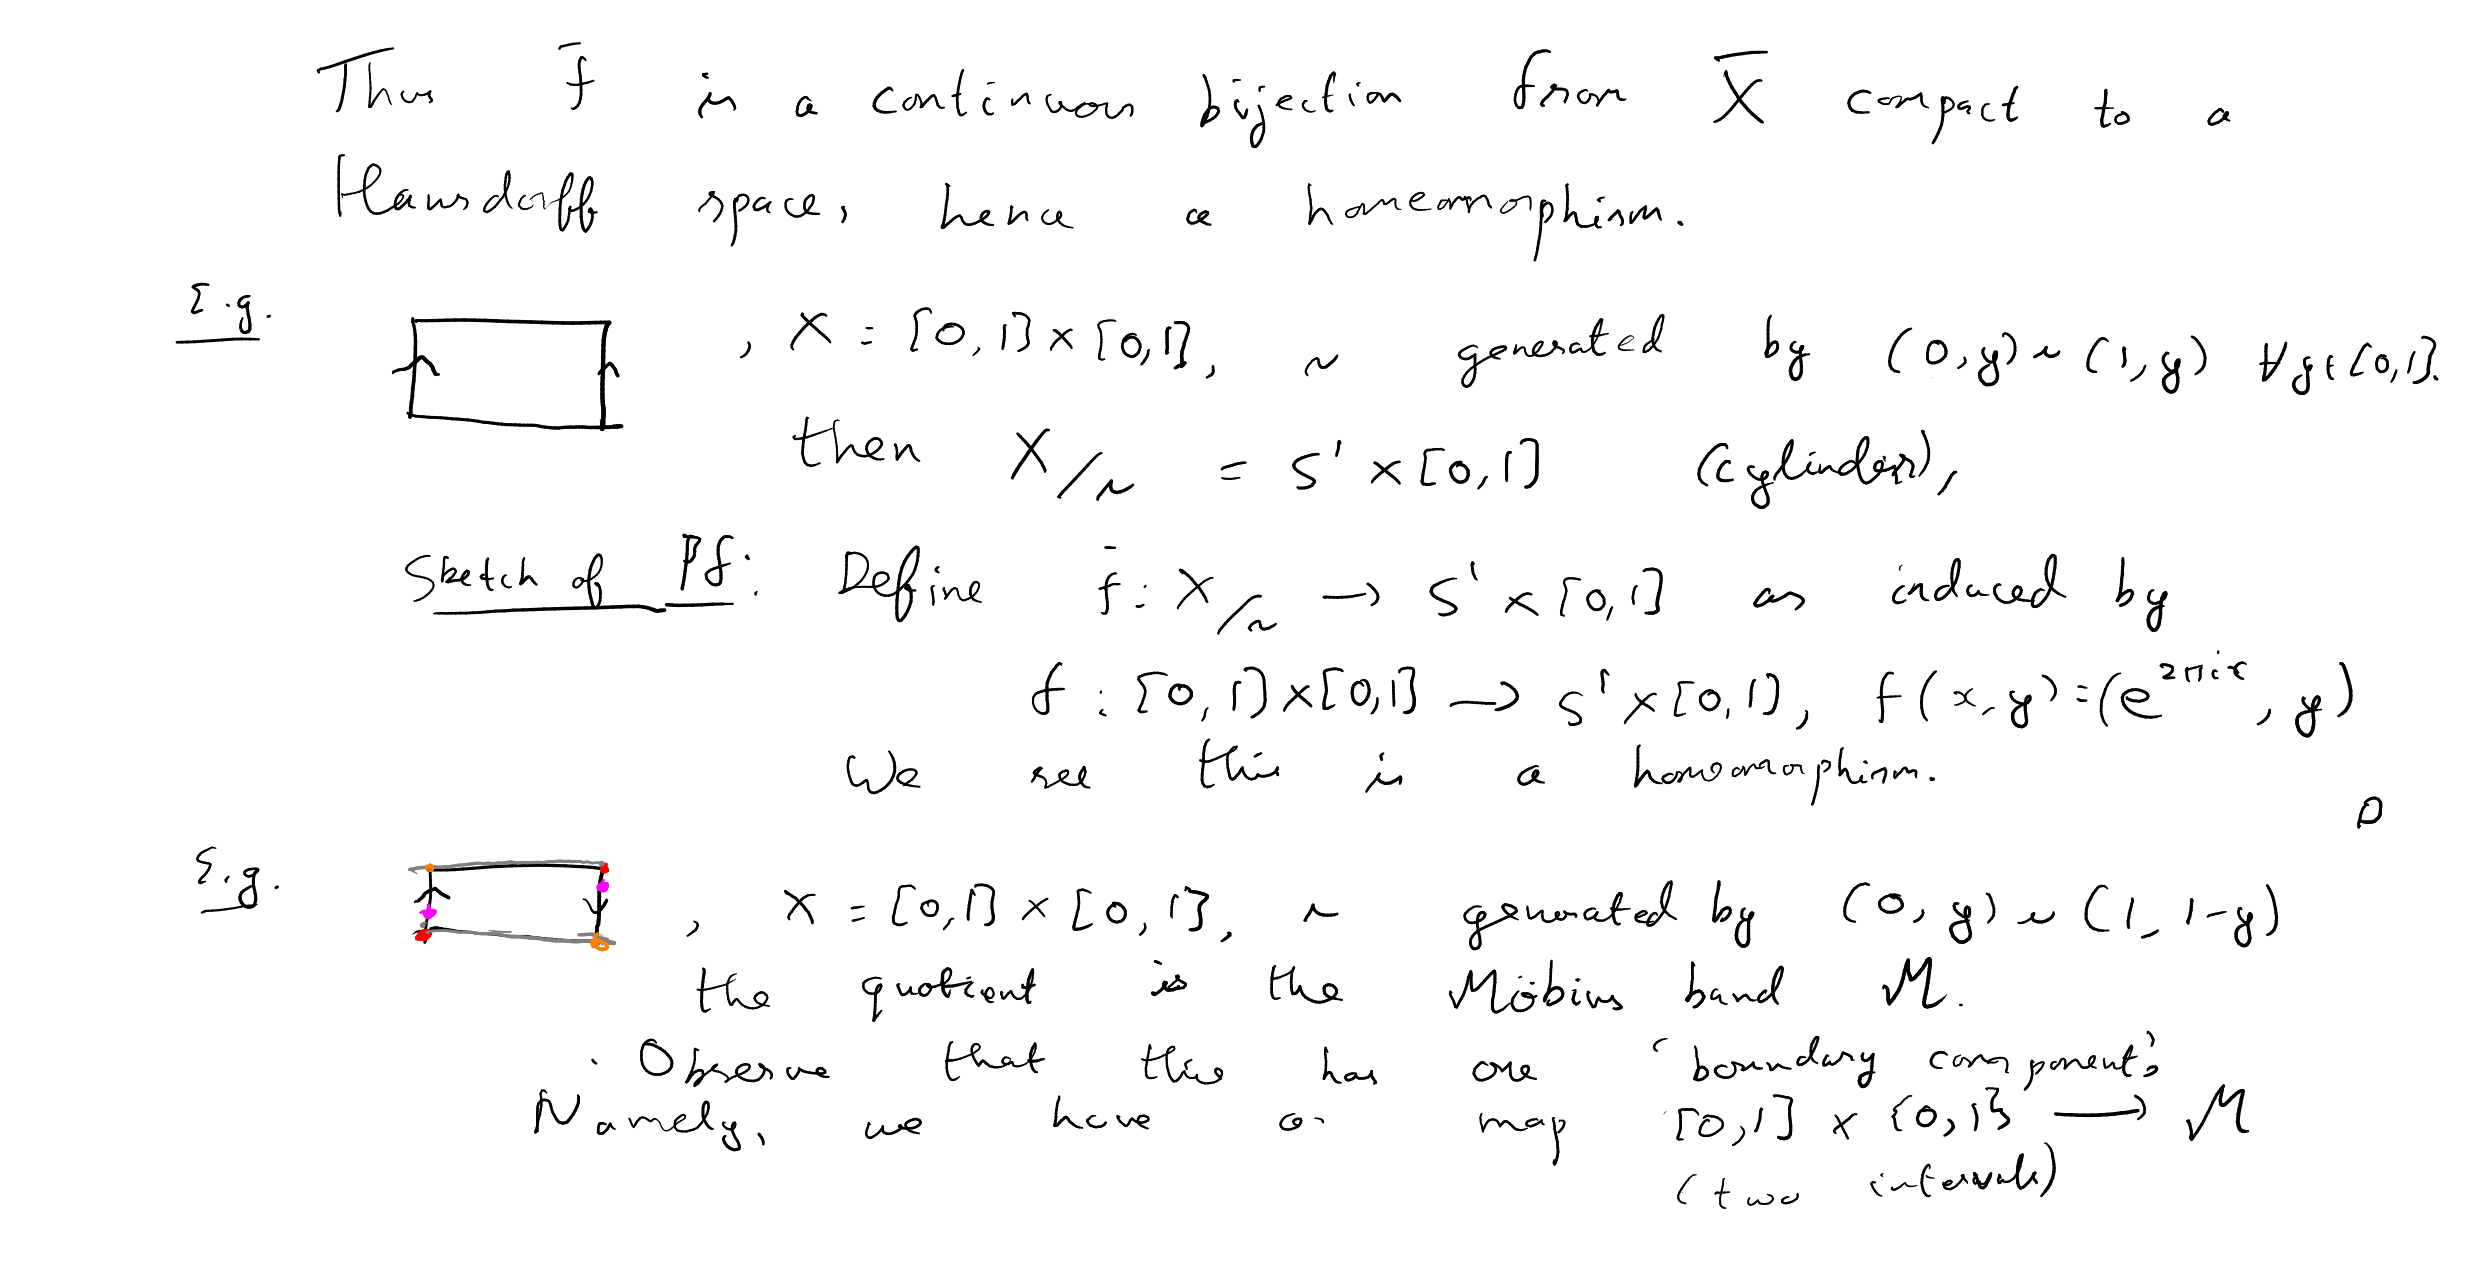 Thus f̄ is a continuous bijection from X̄ compact to a
Hausdorff space, hence a homeomorphism.
E.g. , X = [0,1] × [0,1], ~ generated by (0,y) ~ (1,y) ∀y∈[0,1].
then X/~ = S¹ × [0,1] (cylinder),
Sketch of Pf: Define f̄ : X/~ → S¹ × [0,1] as induced by
f : [0,1] × [0,1] → S¹ × [0,1], f(x,y) = (e^{2πix}, y)
We see this is a homeomorphism. □
E.g. , X = [0,1] × [0,1], ~ generated by (0,y) ~ (1,1-y)
the quotient is the Möbius band M.
· Observe that this has one 'boundary component'.
Namely, we have a map [0,1] × {0,1} → M
(two intervals)